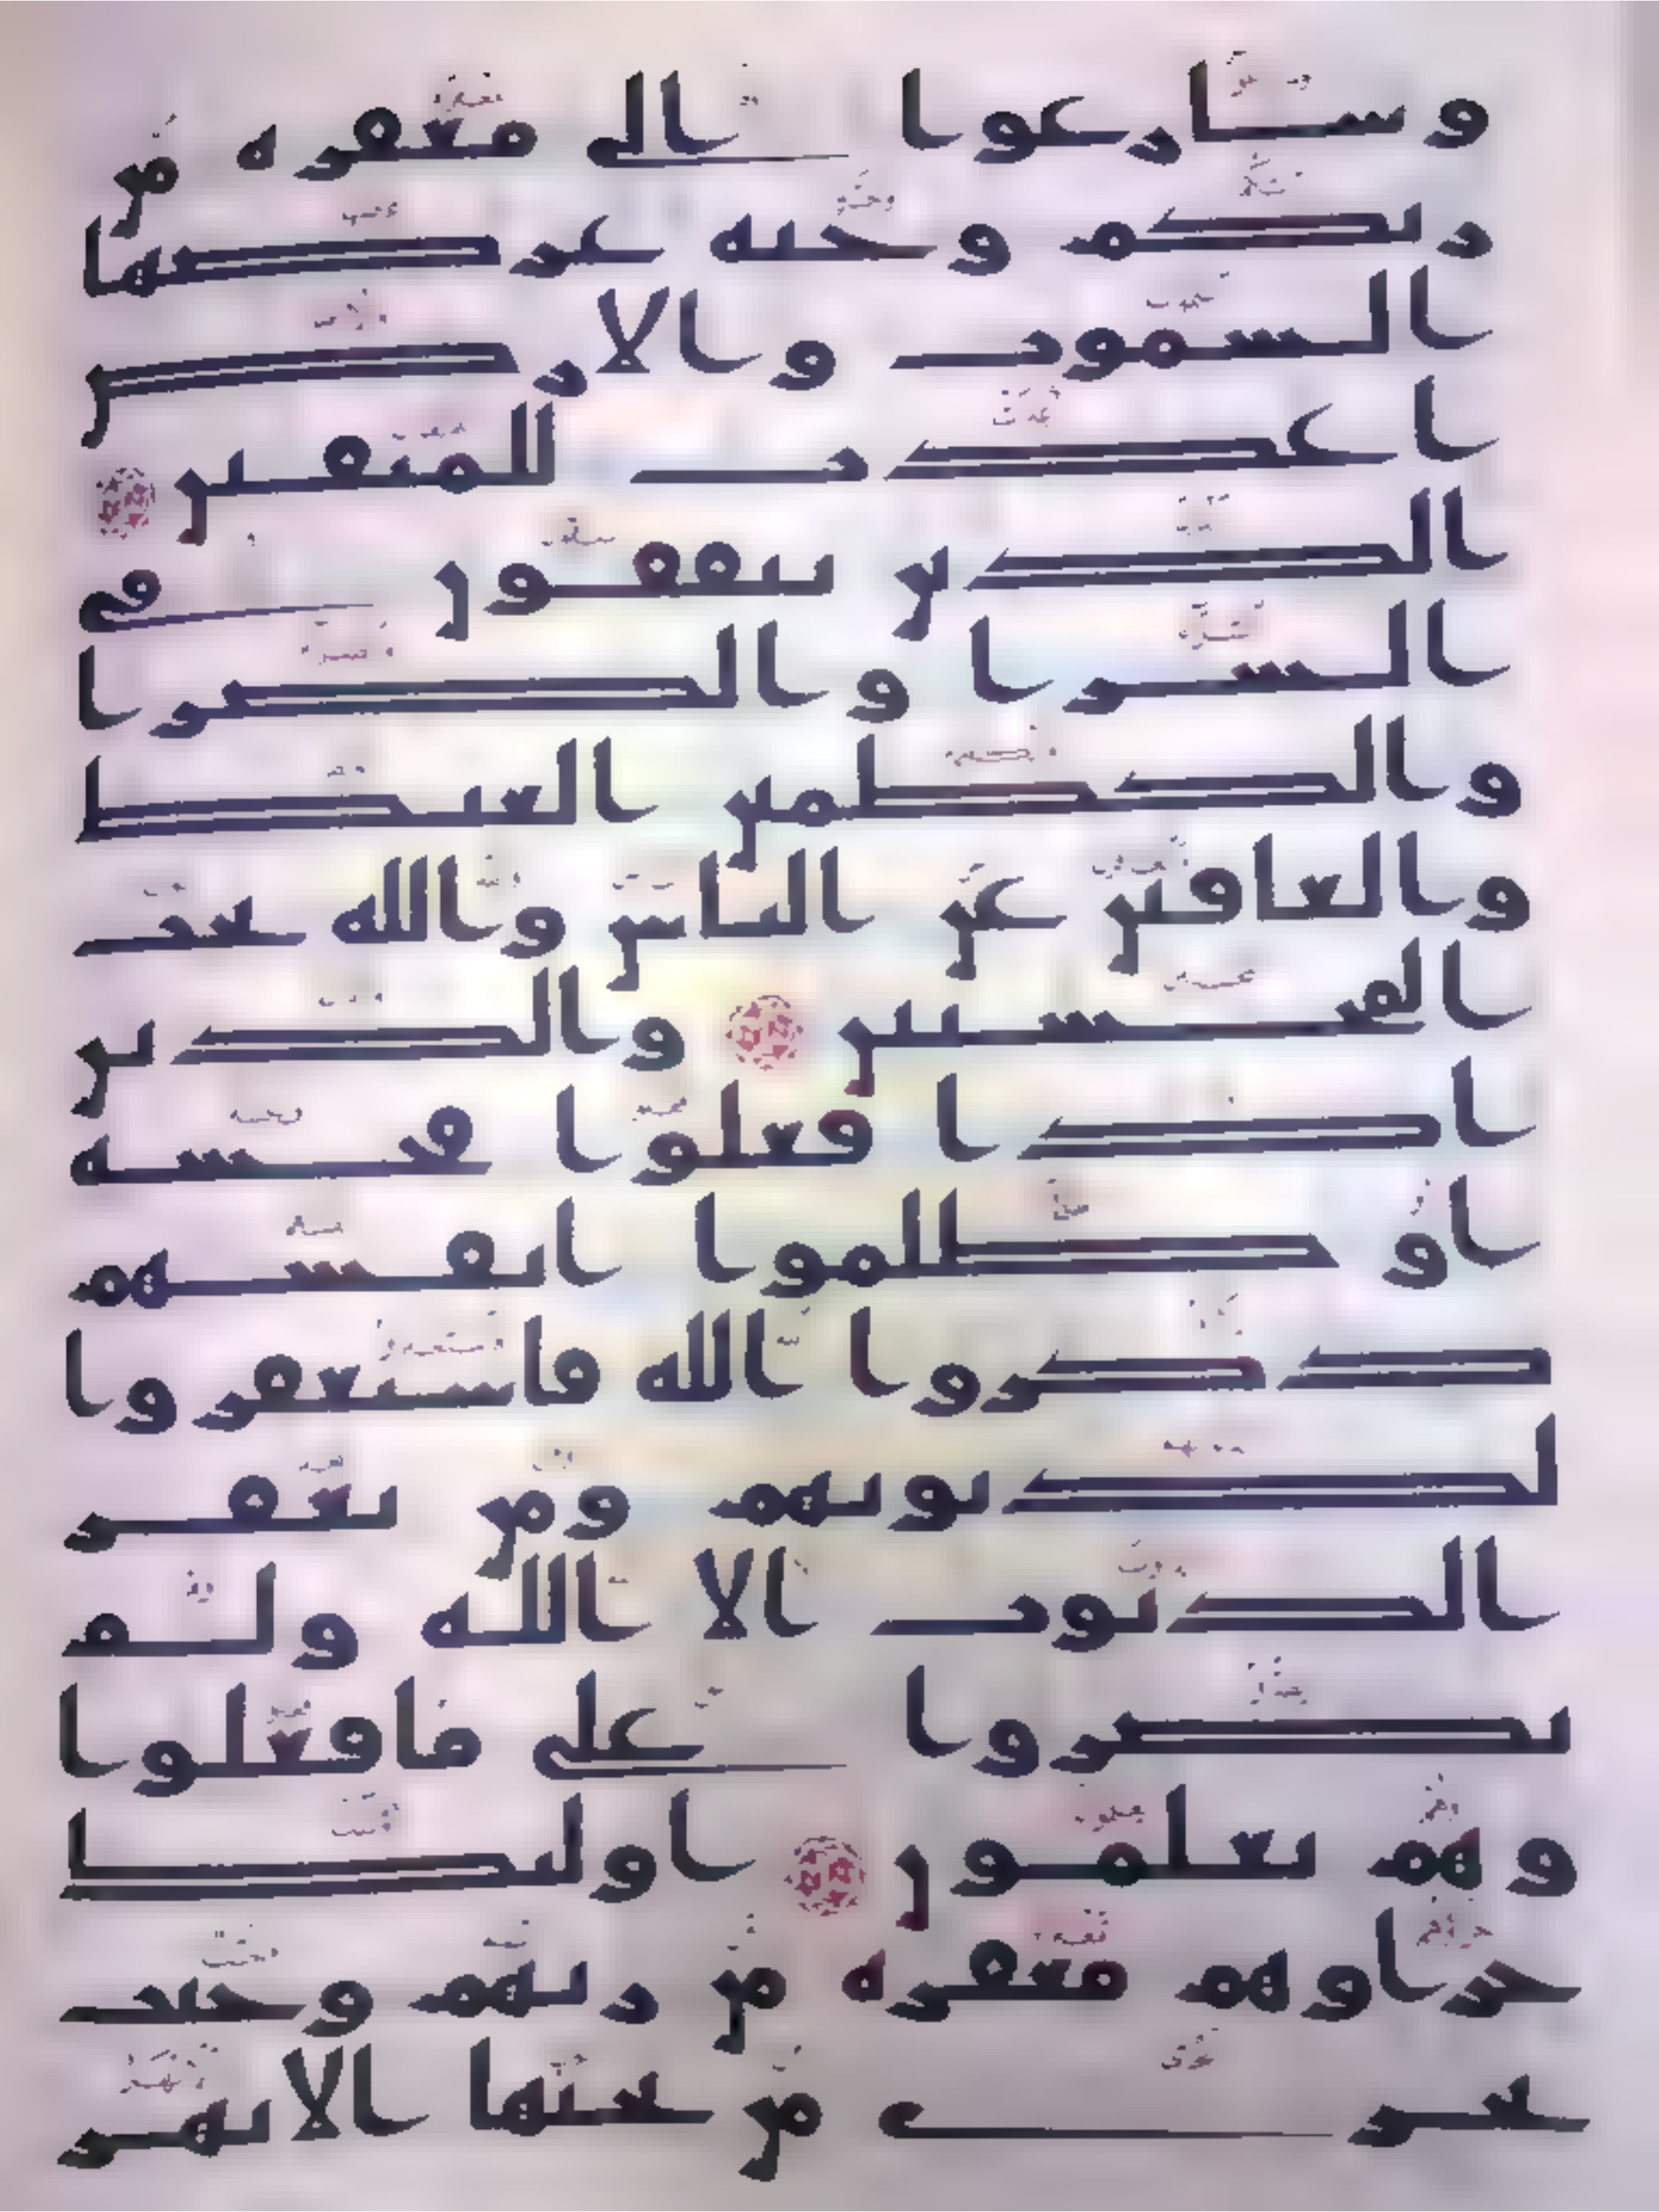 وسارعوا الى مغفرة من
ربكم وجنة عرضها
السموت والارض
اعدت للمتقين
الذين ينفقون في
السرا والضرا
والكظمين الغيظ
والعافين عن الناس والله يحب
المحسنين والذين
اذا فعلوا فحشة
او ظلموا انفسهم
ذكروا الله فاستغفروا
لذنوبهم ومن يغفر
الذنوب الا الله ولم
يصروا على ما فعلوا
وهم يعلمون اوليك
جزاوهم مغفرة من ربهم وجنت
تجري من تحتها الانهر